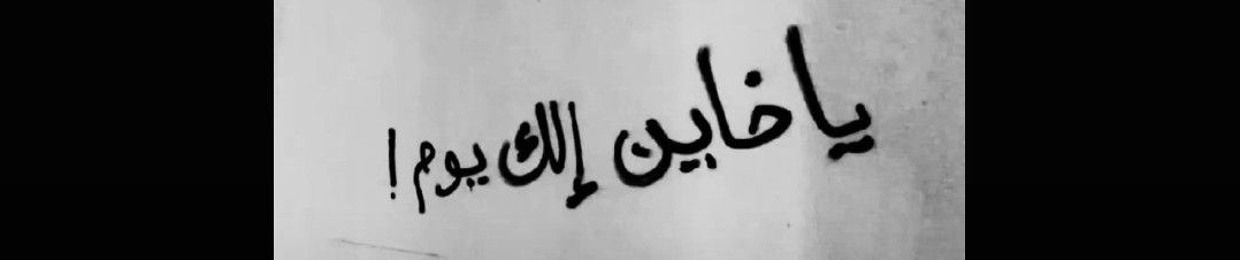 يا خاين إلك يوم !